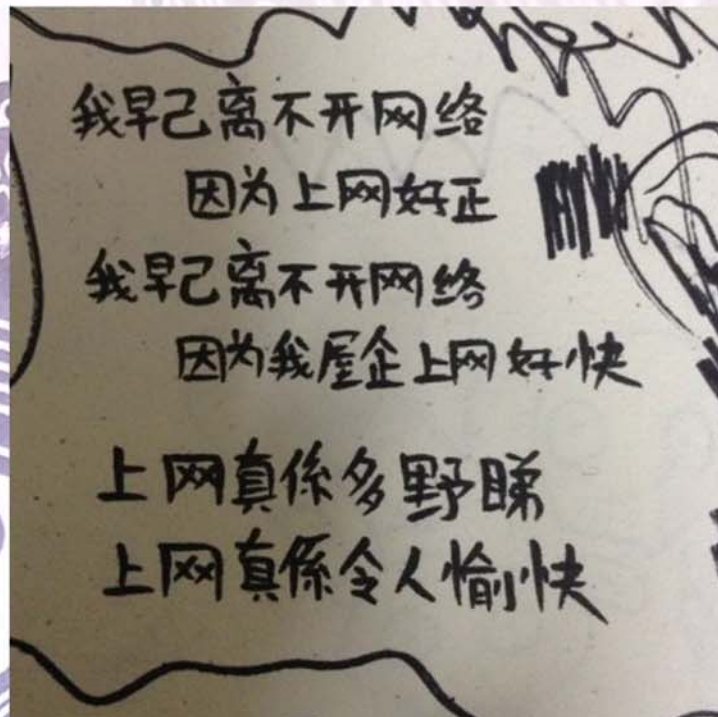 我早已离不开网络
因为上网好正
我早已离不开网络
因为我屋企上网好快
上网真係多野睇
上网真係令人愉快